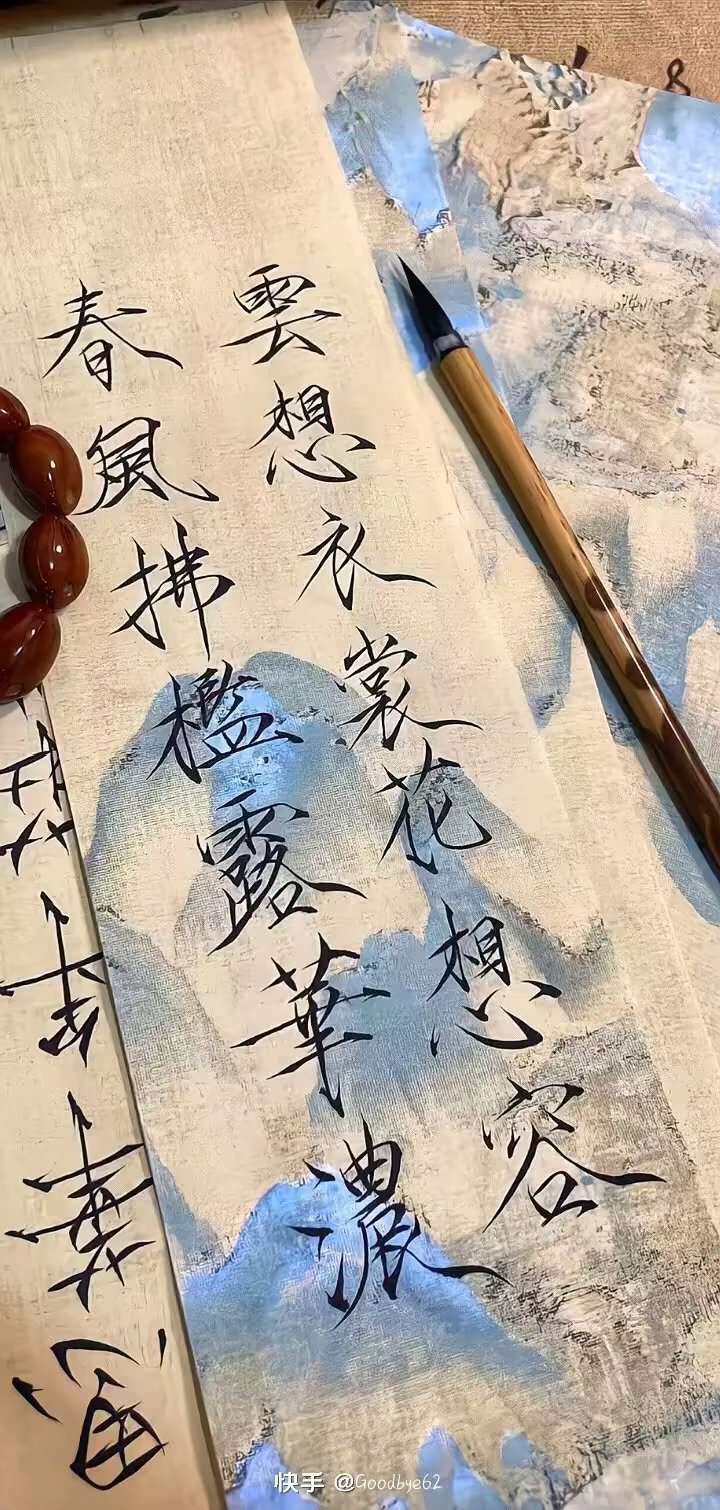 雲想衣裳花想容
春風拂檻露華濃
快手 @Goodbye62